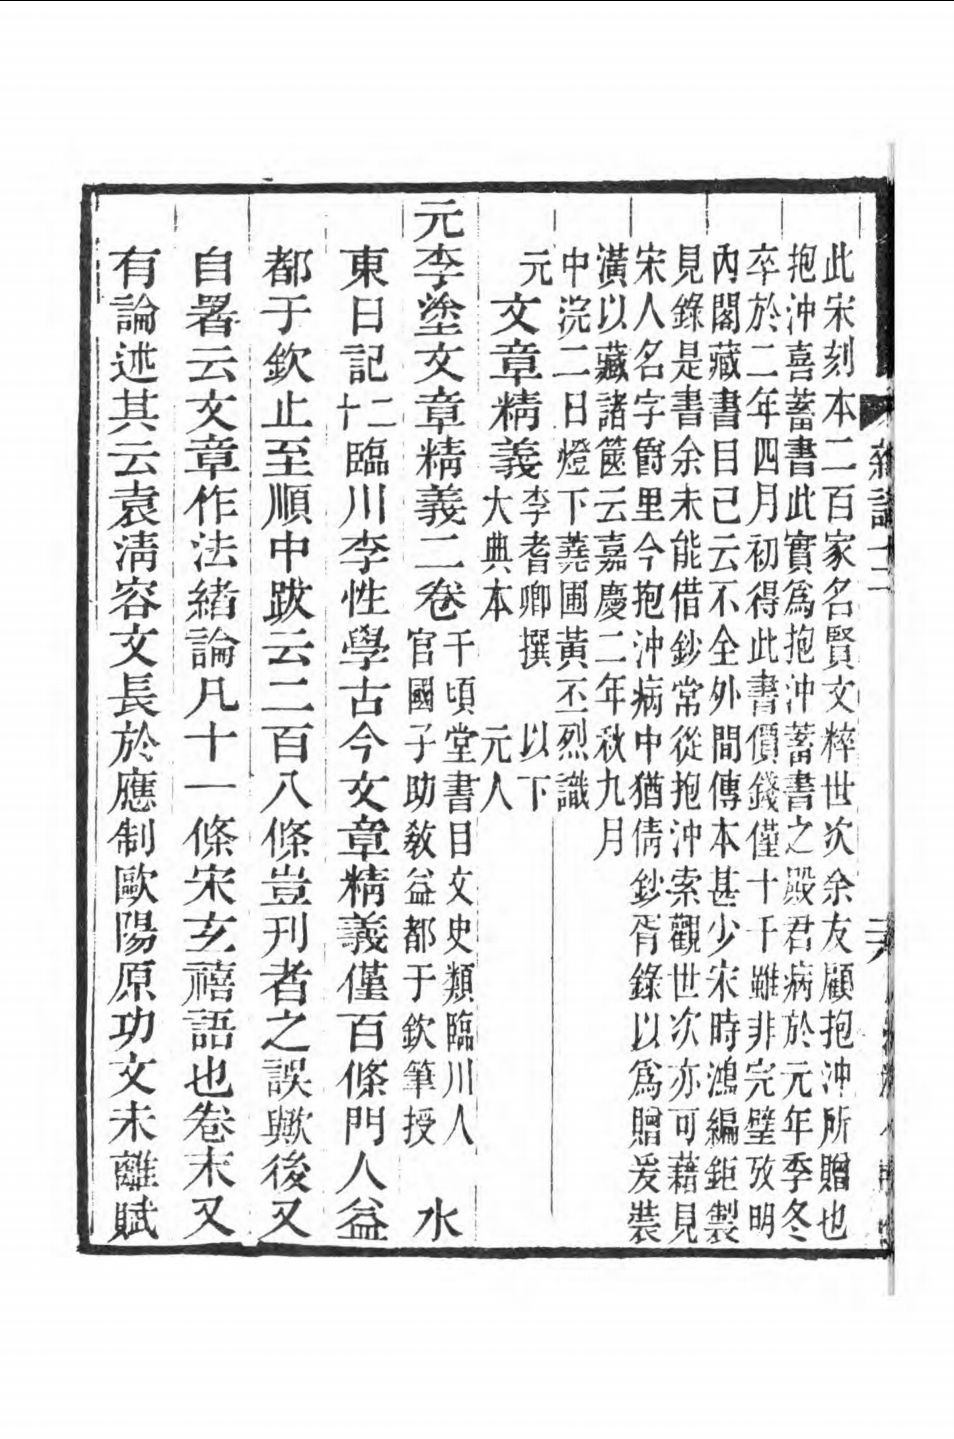 此宋刻本二百家名賢文粹世次余友顧抱沖所贈也
抱沖喜蓄書此實爲抱沖蓄書之殿君病於元年季冬
卒於二年四月初得此書價錢僅十千雖非完璧攷明
內閣藏書目已云不全外間傳本甚少宋時鴻編鉅製
見錄是書余未能借鈔常從抱沖索觀世次亦可藉見
宋人名字爵里今抱沖病中猶倩鈔胥錄以爲贈爰裝
潢以藏諸篋云嘉慶二年秋九月
中浣二日燈下蕘圃黃丕烈識
元文章精義李耆卿撰 以下
大典本 元人
元李塗文章精義二卷千頃堂書目文史類臨川人
官國子助敎益都于欽筆授 水
東日記十二臨川李性學古今文章精義僅百條門人益
都于欽止至順中跋云二百八條豈刊者之誤歟後又
自署云文章作法緒論凡十一條宋玄禧語也卷末又
有論述其云袁淸容文長於應制歐陽原功文未離賦